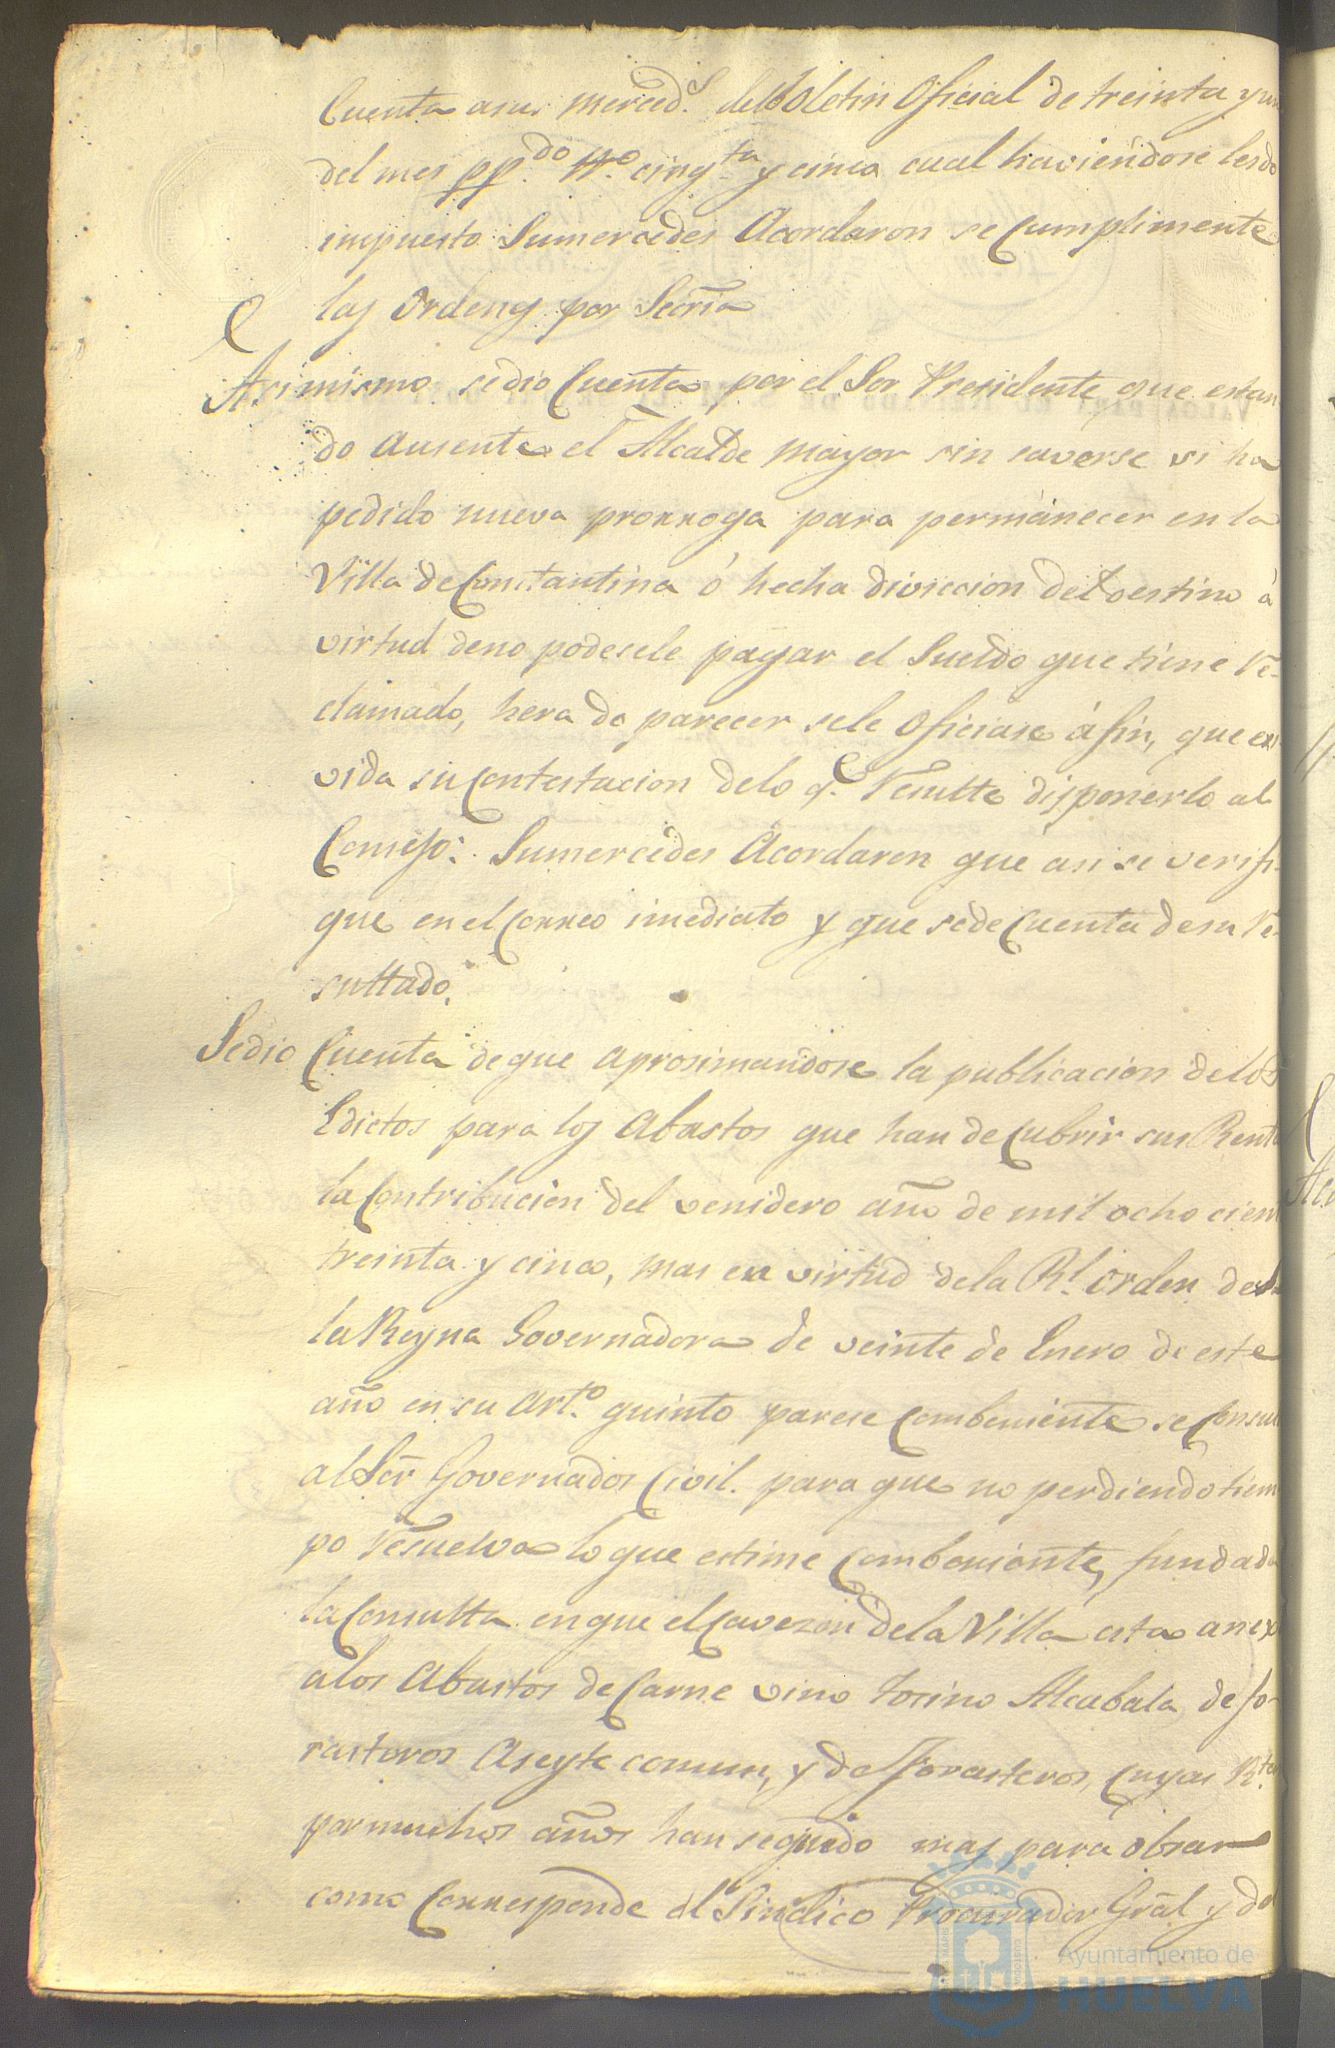 Cuenta asus merced.s del boletin Oficial de treinta y un
del mes pp.do N.o cinq.ta y cinco cual haviendose leido
impuesto Sumercedes Acordaron se Cumplimente
las Ordenes por Secria
Asi mismo se dio Cuenta por el Sor Presidente que estan
do ausente el Alcalde mayor sin saverse si ha
pedido nueva prorroga para permanecer en la
Villa de Constantina ó hecha divicion del destino á
virtud de no podesele pagar el Sueldo que tiene re-
clamado, hera de parecer sele Oficiase á fin, que
vida su Contestacion delo q.e Resulte disponerlo al
Consejo: Sumercedes Acordaron que asi se verifi-
que en el Correo imediato y que sede Cuenta de su re-
sultado.
Sedio Cuenta de que aprosimandose la publicacion delos
Edictos para los Abastos que han de Cubrir sus Rent
la Contribucion del venidero año de mil ocho cien
treinta y cinco, mas en virtud dela Rl. orden de
la Reyna Governadora de veinte de Enero de este
año en su Art.o quinto parese Combeniente se Consul
al Sor Governador Civil. para que no perdiendo tiem
po Resuelva lo que estime Combeniente, fundada
la Consulta en que el Cavezon de la Villa esta anex
alos Abastos de Carne vino tosino Alcabala de fo-
rasteros Aseyte comun, y de forasteros, Cuyas R.tas
por muchos años han seguido mas para obrar
como Corresponde el Sindico Procurador Gral y de
Ayuntamiento de
HUELVA